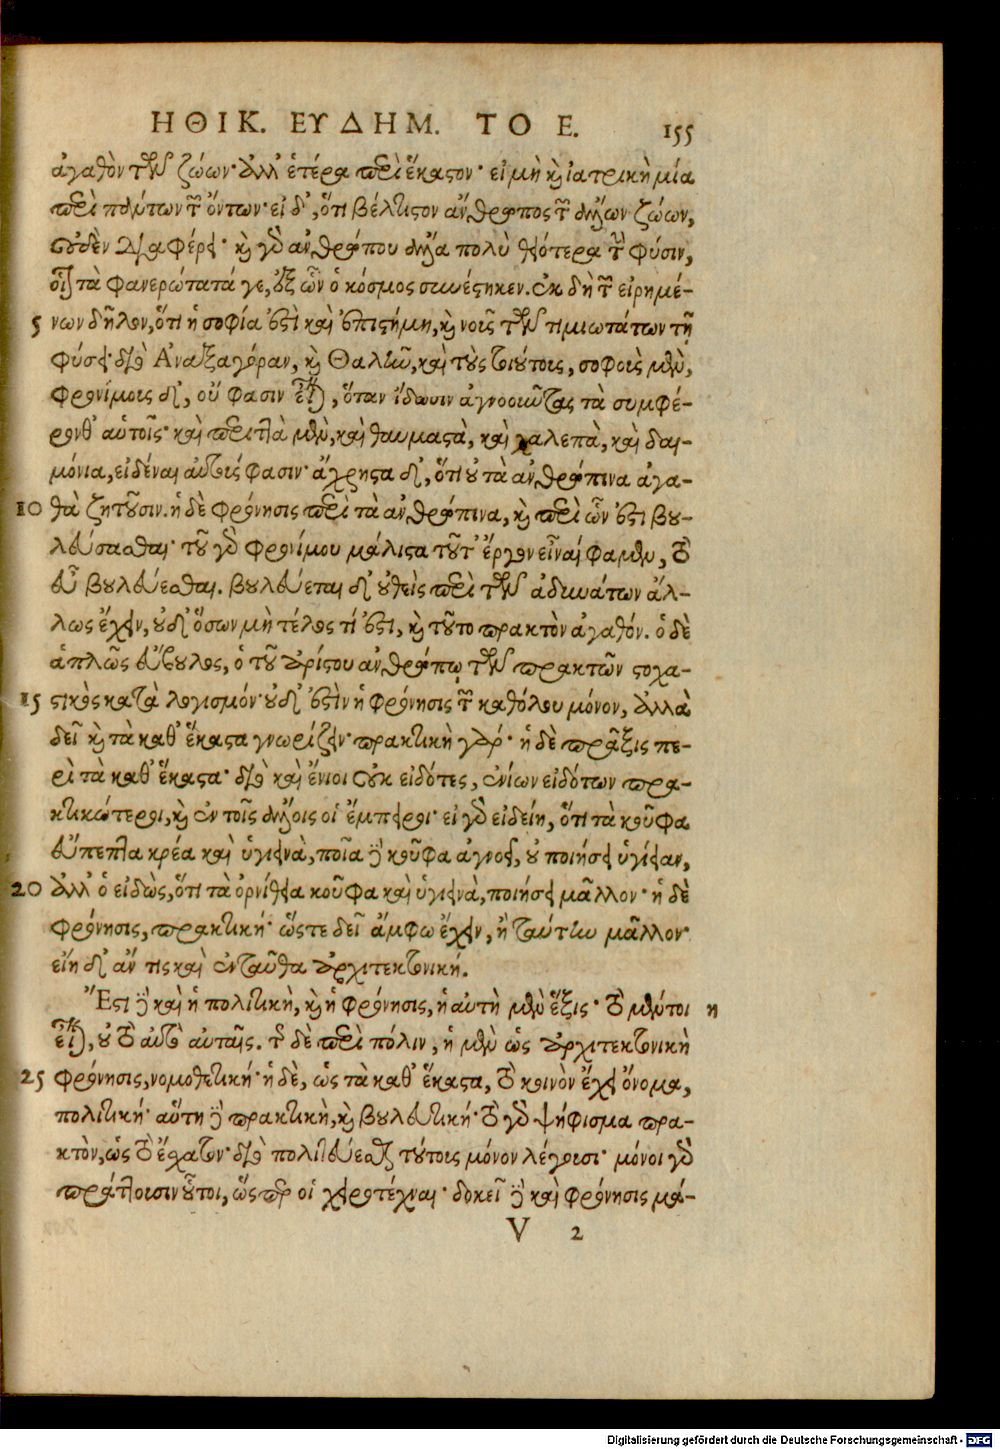 ΗΘΙΚ. ΕΥΔΗΜ. ΤΟ Ε. 155
ἀγαθὸν τῶν ζώων· ἀλλ' ἑτέρα περὶ ἕκαστον· εἰ μὴ καὶ ἰατρικὴ μία
περὶ πάντων τῶν ὄντων· εἰ δ', ὅτι βέλτιστον ἄνθρωπος τῶν ἄλλων ζώων,
οὐδὲν διαφέρει· καὶ γὰρ ἀνθρώπου ἄλλα πολὺ θειότερα τὴν φύσιν,
οἷον τὰ φανερώτατά γε, ἐξ ὧν ὁ κόσμος συνέστηκεν. ἐκ δὴ τῶν εἰρημέ-
5 νων δῆλον, ὅτι ἡ σοφία ἐστὶ καὶ ἐπιστήμη, καὶ νοῦς τῶν τιμιωτάτων τῇ
φύσει· διὸ Ἀναξαγόραν, καὶ Θαλῆν, καὶ τοὺς τοιούτους, σοφοὺς μὲν,
φρονίμους δ', οὔ φασιν εἶναι, ὅταν ἴδωσιν ἀγνοοῦντας τὰ συμφέ-
ρονθ' αὑτοῖς· καὶ περιττὰ μὲν, καὶ θαυμαστὰ, καὶ χαλεπὰ, καὶ δαι-
μόνια, εἰδέναι αὐτούς φασιν· ἄχρηστα δ', ὅτι οὐ τὰ ἀνθρώπινα ἀγα-
10 θὰ ζητοῦσιν. ἡ δὲ φρόνησις περὶ τὰ ἀνθρώπινα, καὶ περὶ ὧν ἐστι βου-
λεύσασθαι· τοῦ γὰρ φρονίμου μάλιστα τοῦτ' ἔργον εἶναί φαμεν, τὸ
εὖ βουλεύεσθαι. βουλεύεται δ' οὐθεὶς περὶ τῶν ἀδυνάτων ἄλ-
λως ἔχειν, οὐδ' ὅσων μὴ τέλος τί ἐστι, καὶ τοῦτο πρακτὸν ἀγαθόν. ὁ δὲ
ἁπλῶς εὔβουλος, ὁ τοῦ ἀρίστου ἀνθρώπῳ τῶν πρακτῶν στοχα-
15 στικὸς κατὰ λογισμόν· οὐδ' ἐστὶν ἡ φρόνησις τῶν καθόλου μόνον, ἀλλὰ
δεῖ καὶ τὰ καθ' ἕκαστα γνωρίζειν· πρακτικὴ γάρ· ἡ δὲ πρᾶξις πε-
ρὶ τὰ καθ' ἕκαστα· διὸ καὶ ἔνιοι οὐκ εἰδότες, ἐνίων εἰδότων πρα-
κτικώτεροι, καὶ ἐν τοῖς ἄλλοις οἱ ἔμπειροι· εἰ γὰρ εἰδείη, ὅτι τὰ κοῦφα
εὔπεπτα κρέα καὶ ὑγιεινὰ, ποῖα δὲ κοῦφα ἀγνοεῖ, οὐ ποιήσει ὑγίειαν,
20 ἀλλ' ὁ εἰδὼς, ὅτι τὰ ὀρνίθεια κοῦφα καὶ ὑγιεινὰ, ποιήσει μᾶλλον· ἡ δὲ
φρόνησις, πρακτική· ὥστε δεῖ ἄμφω ἔχειν, ἢ ταύτην μᾶλλον·
εἴη δ' ἄν τις καὶ ἐνταῦθα ἀρχιτεκτονική.
Ἔστι δὲ καὶ ἡ πολιτικὴ, καὶ ἡ φρόνησις, ἡ αὐτὴ μὲν ἕξις· τὸ μέντοι η
εἶναι, οὐ τὸ αὐτὸ αὐταῖς. τῆς δὲ περὶ πόλιν, ἡ μὲν ὡς ἀρχιτεκτονικὴ
25 φρόνησις, νομοθετική· ἡ δὲ, ὡς τὰ καθ' ἕκαστα, τὸ κοινὸν ἔχει ὄνομα,
πολιτική· αὕτη δὲ πρακτικὴ, καὶ βουλευτική· τὸ γὰρ ψήφισμα πρα-
κτὸν, ὡς τὸ ἔσχατον· διὸ πολιτεύεσθαι τούτους μόνον λέγουσι· μόνοι γὰρ
πράττουσιν οὗτοι, ὥσπερ οἱ χειροτέχναι· δοκεῖ δὲ καὶ φρόνησις μά-
V 2
Digitalisierung gefördert durch die Deutsche Forschungsgemeinschaft - DFG